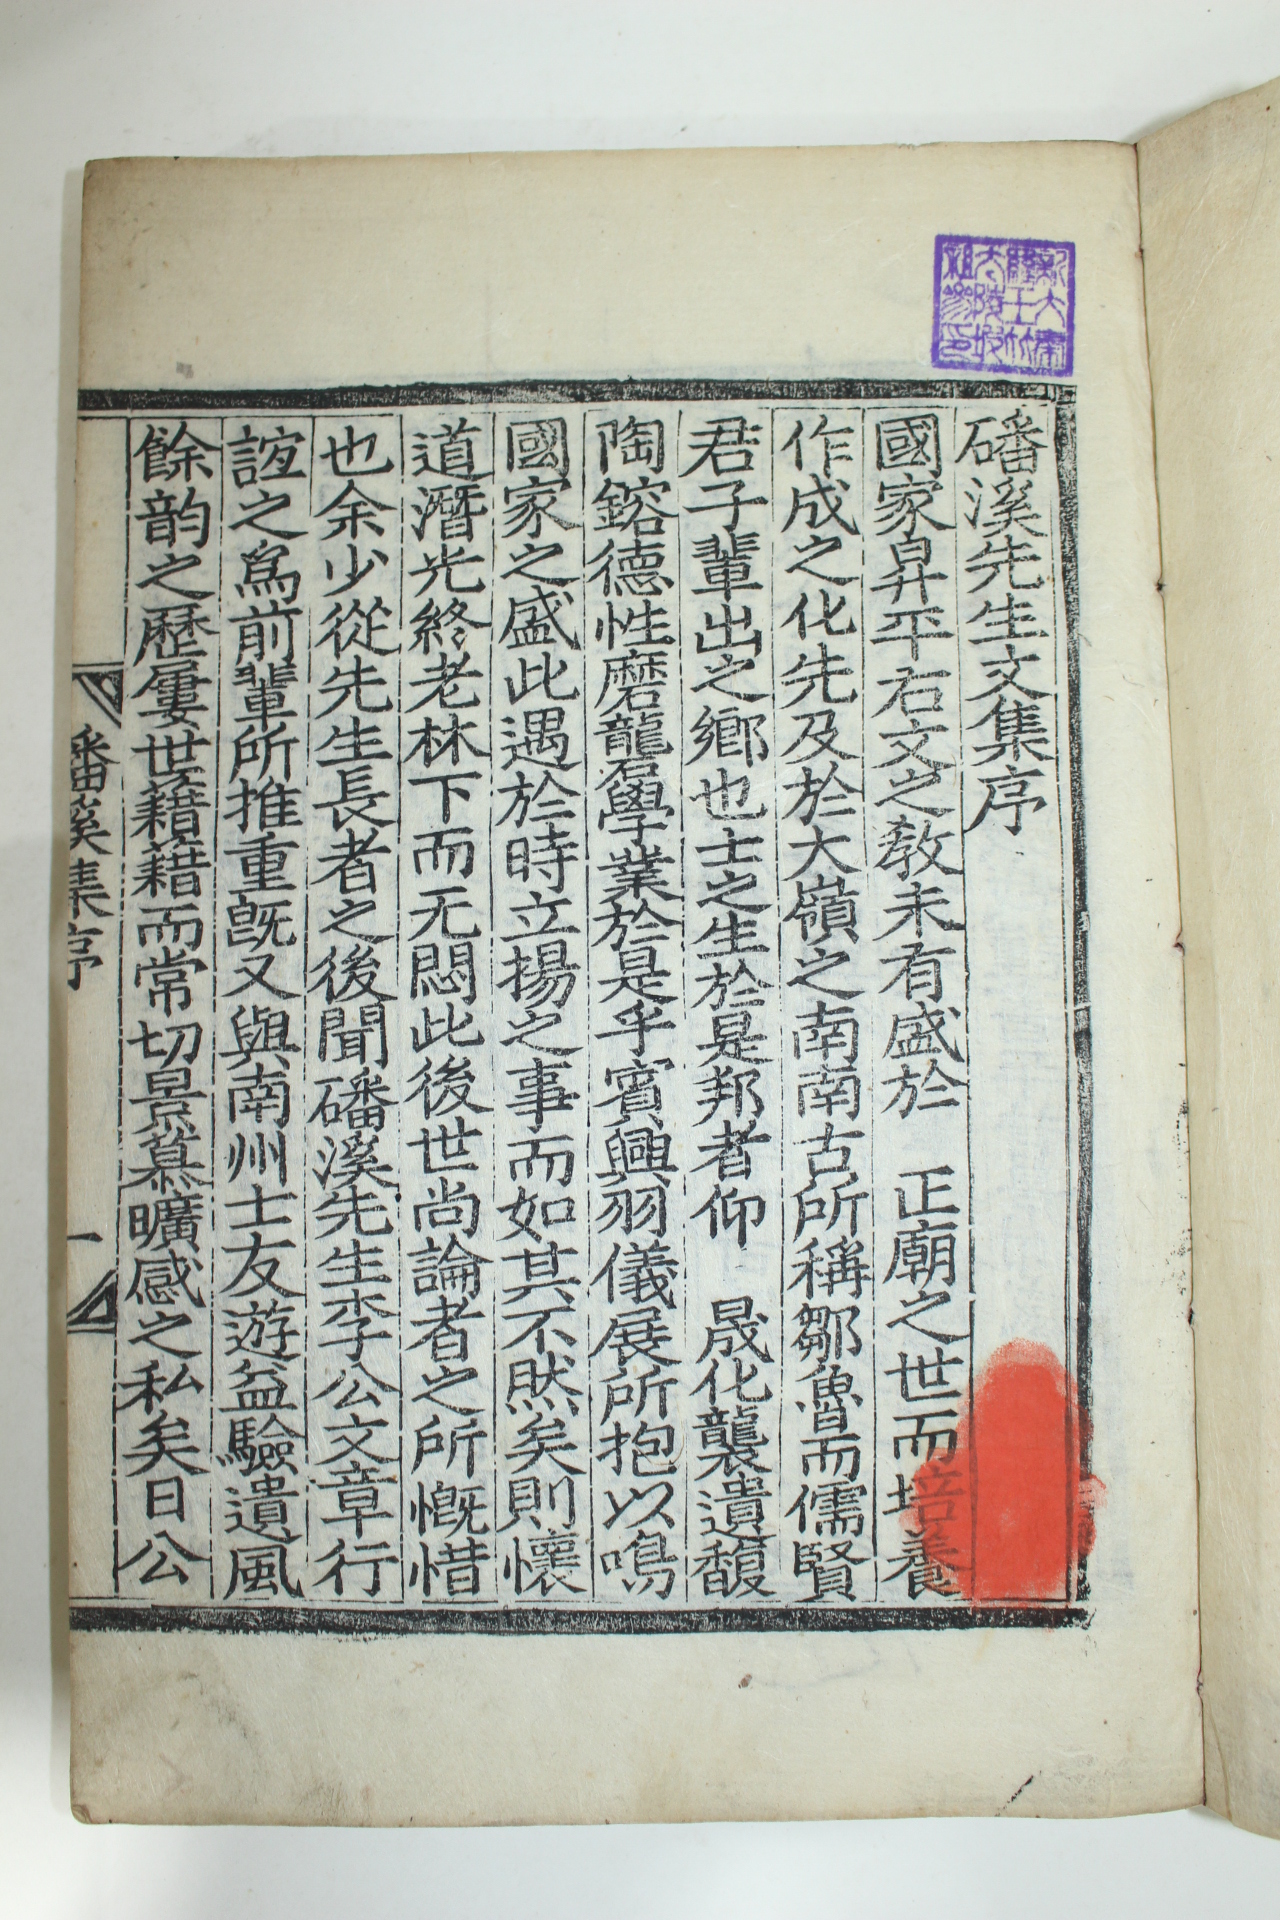 磻溪先生文集序
國家昇平右文之敎未有盛於　正廟之世而培養
作成之化先及於大嶺之南南古所稱鄒魯而儒賢
君子輩出之鄕也士之生於是邦者仰　晟化襲遺馥
陶鎔德性磨礱學業於是乎賓興羽儀展所抱以鳴
國家之盛此遇於時立揚之事而如其不然矣則懷
道潛光終老林下而无悶此後世尚論者之所慨惜
也余少從先生長者之後聞磻溪先生李公文章行
誼之爲前輩所推重旣又與南州士友遊益驗遺風
餘韵之歷屢世藉藉而常切景慕曠感之私矣日公
磻溪集序
一